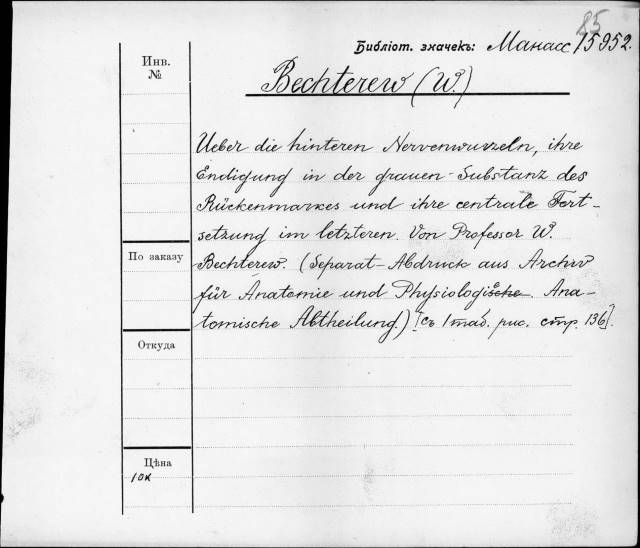 85
Библіот. значекъ: Манасс 15952.
Инв.
№
Bechterew (W.)
Ueber die hinteren Nervenwurzeln, ihre
Endigung in der grauen Substanz des
Rückenmarkes und ihre centrale Fort-
setzung im letzteren. Von Professor W.
Bechterew. (Separat-Abdruck aus Archiv
für Anatomie und Physiologische Ana-
tomische Abtheilung.) [съ 1 таб. рис. стр. 136].
По заказу
Откуда
Цѣна
10к